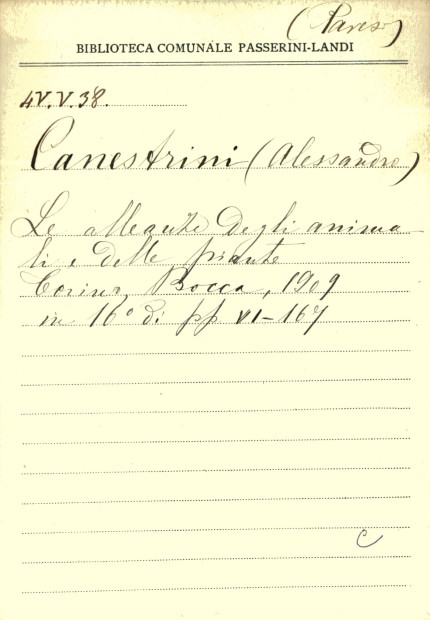 (Pares)
BIBLIOTECA COMUNALE PASSERINI-LANDI
4V.V.38.
Canestrini (Alessandro)
Le alleanze degli anima-
li e delle piante
Torino, Bocca, 1909
in 16º di pp VI-167
C